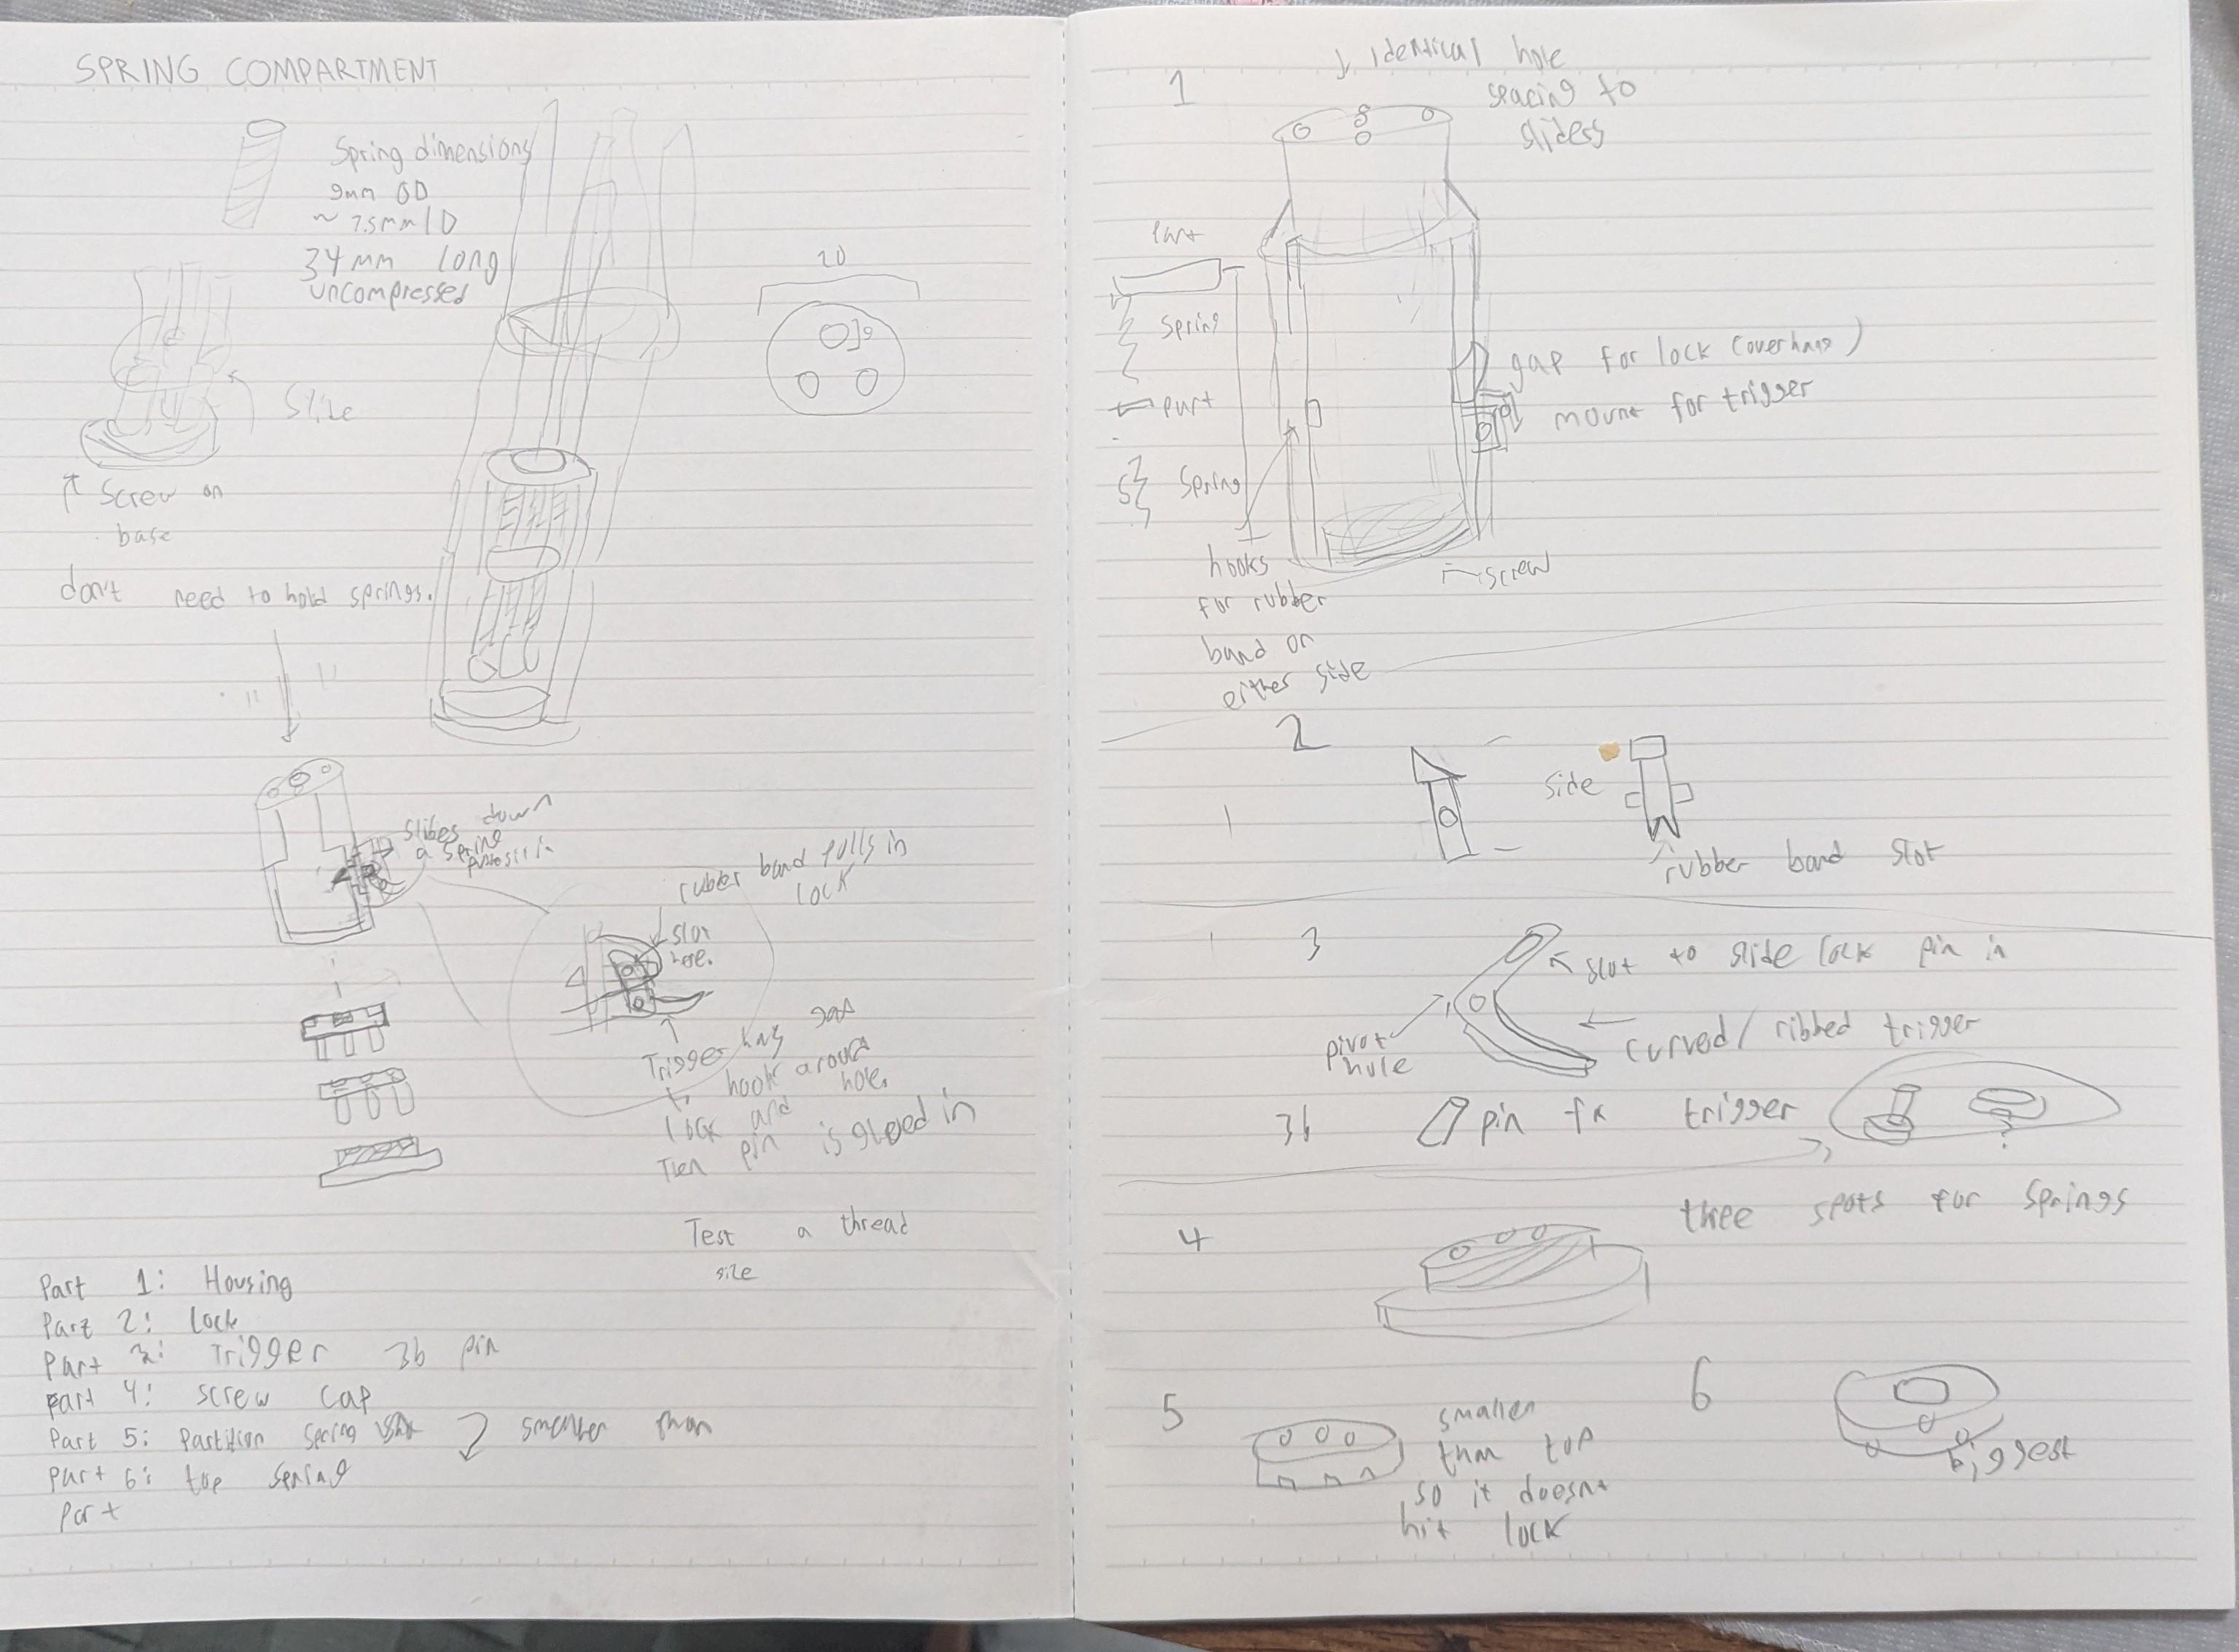 SPRING COMPARTMENT
Spring dimensions
9mm OD
~ 7.5mm ID
34mm long
uncompressed
20
9
Slide
Screw on
base
don't need to hold springs.
Slides down
a spring
rubber band pulls in
lock
slot
here.
Trigger has gap
to hook around
lock and hole.
Then pin is glued in
Test a thread
size
Part 1: Housing
Part 2: Lock
Part 3: Trigger 3b pin
Part 4: screw cap
Part 5: Partition spring smaller than
Part 6: top spring
Part
1
↓ identical hole
spacing to
sliders
Part
Spring
Part
Spring
gap for lock (overhang)
mount for trigger
hooks
for rubber
band on
either side
screw
2
side
rubber band slot
3
slot to slide lock pin in
pivot
hole
curved/ribbed trigger
3b
pin for trigger
?
4
three spots for springs
5
smaller
than top
so it doesnt
hit lock
6
biggest